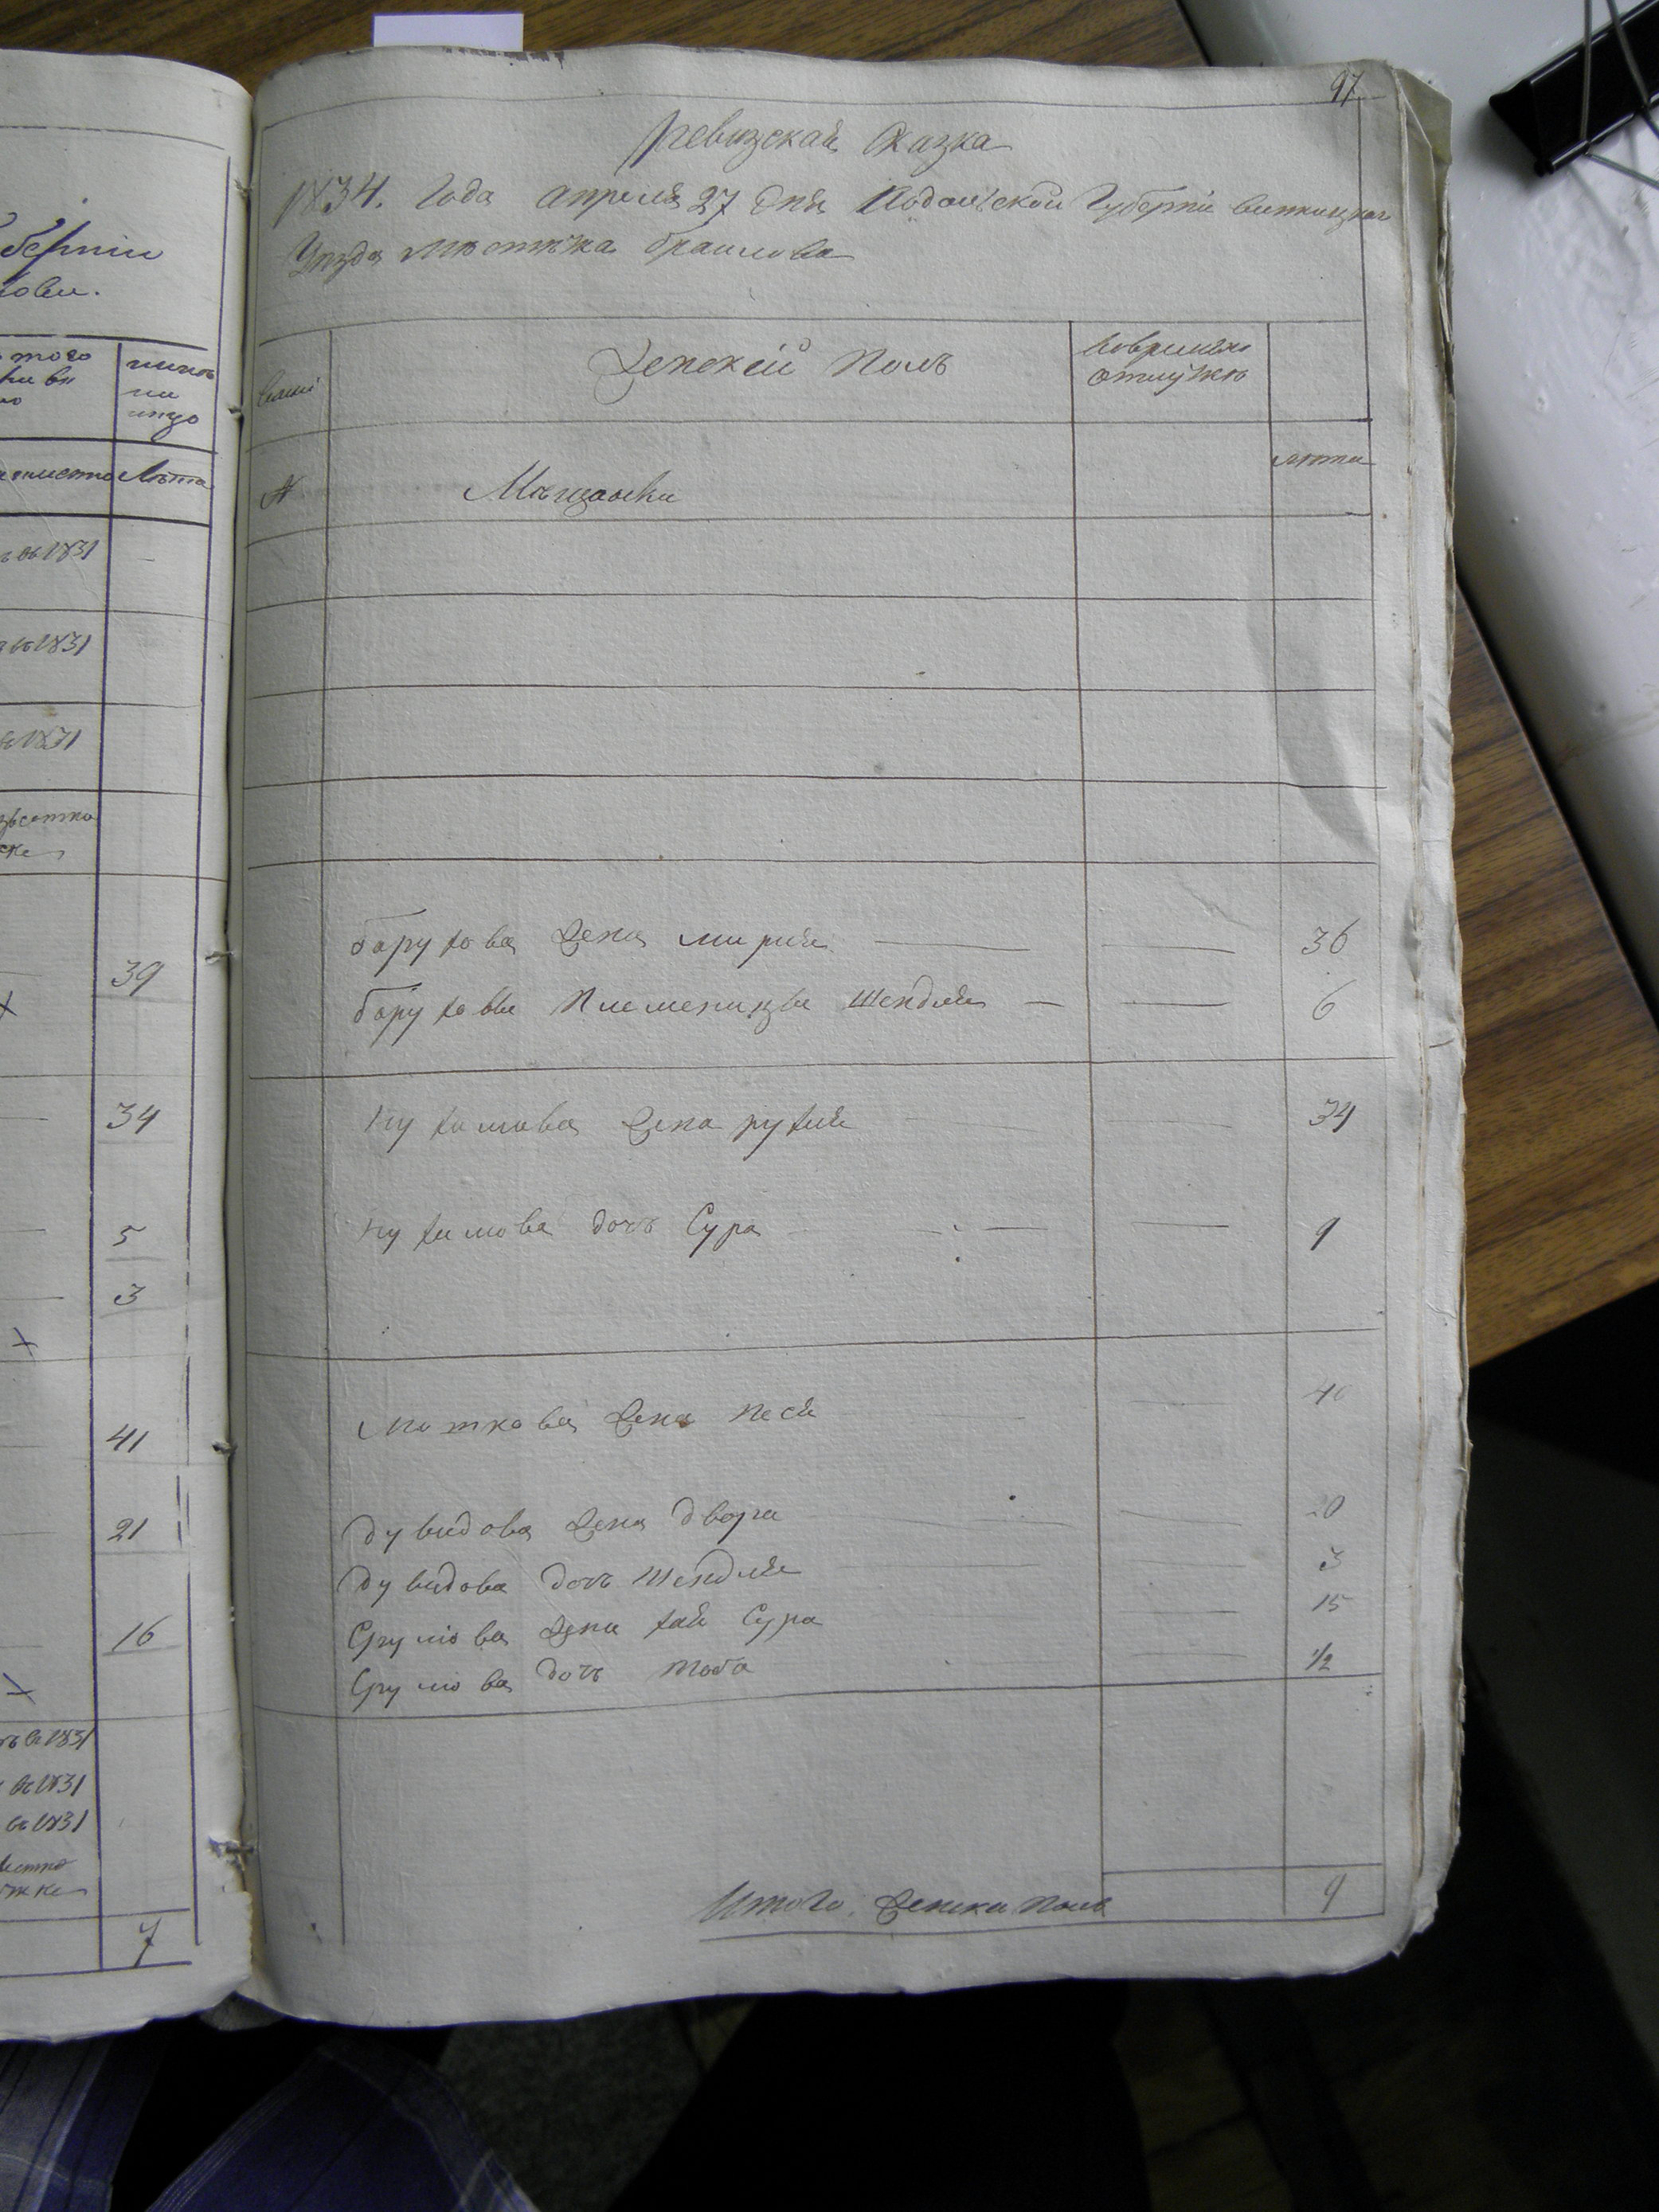 97
Ревизская Сказка
1834. Года апреля 27 дня Подольской Губерніи винницкаго
Уезда Местечка Браилова
Женскій Полъ
Во временно
отлучке
лета
№
Мещански
Барухова Жена мирля 36
Барухова Племеница Шендля 6
Нухимова Жена рухля 34
Нухимова дочь Сура 9
Мошкова Жена Песя 40
Дувидова Жена Двора 20
Дувидова дочь Шендля 3
Срулюва Жена хая Сура 15
Срулюва дочь Тоба 1/2
Итого Женска полъ 9
берніи
того
Лета
въ 1831
въ 1831
въ 1831
39
34
5
3
41
21
16
въ 1831
въ 1831
въ 1831
7